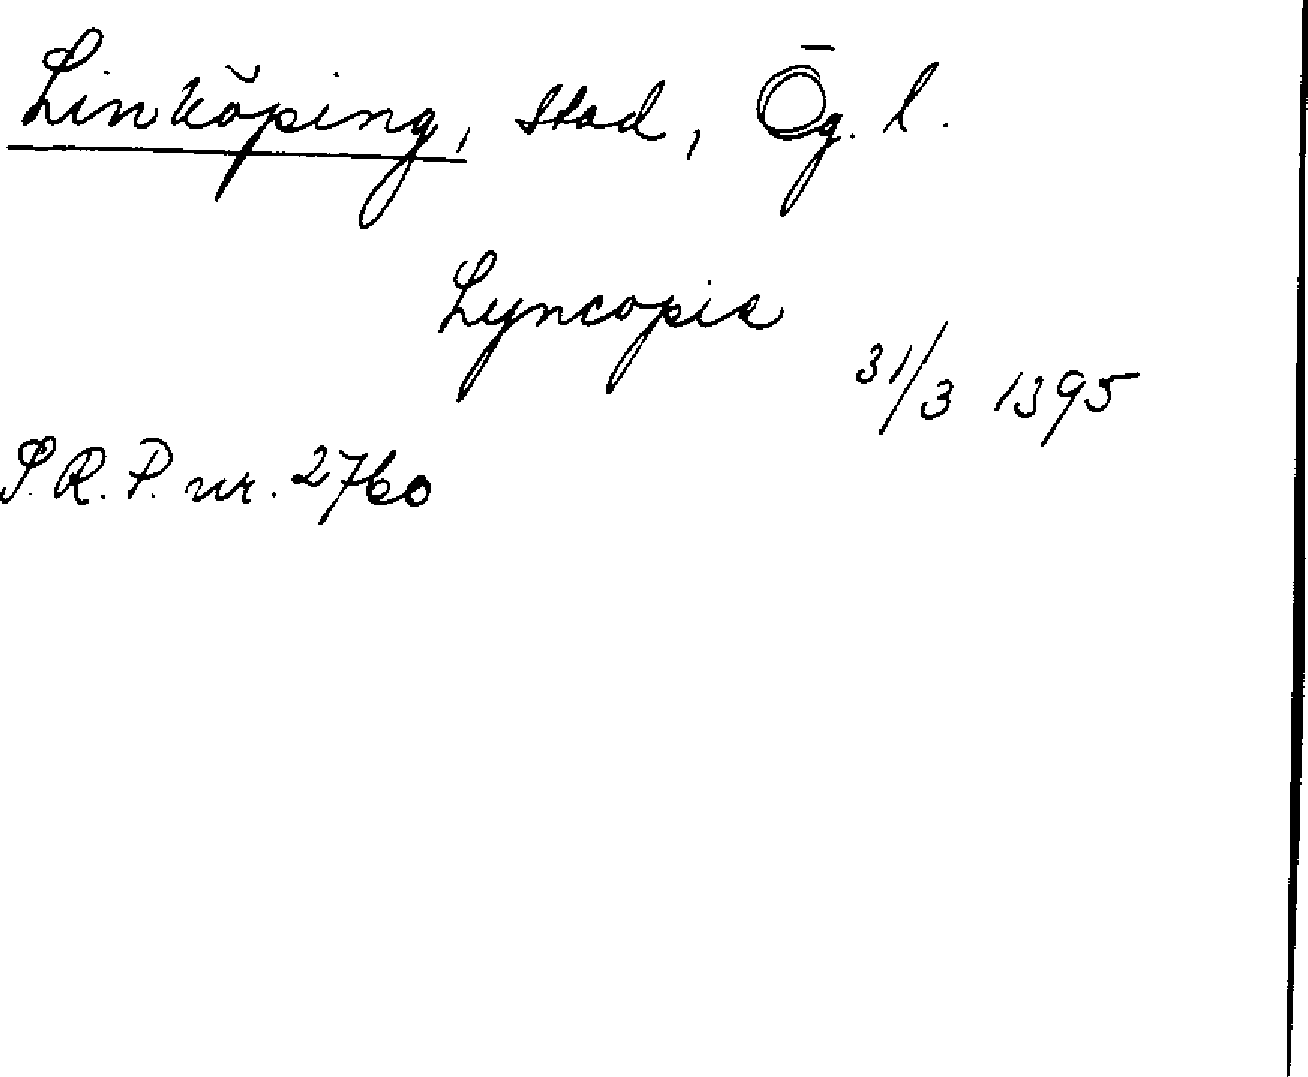 Linköping, stad, Ög. l.
Lyncopie
31/3 1395
S.R.P. nr. 2760